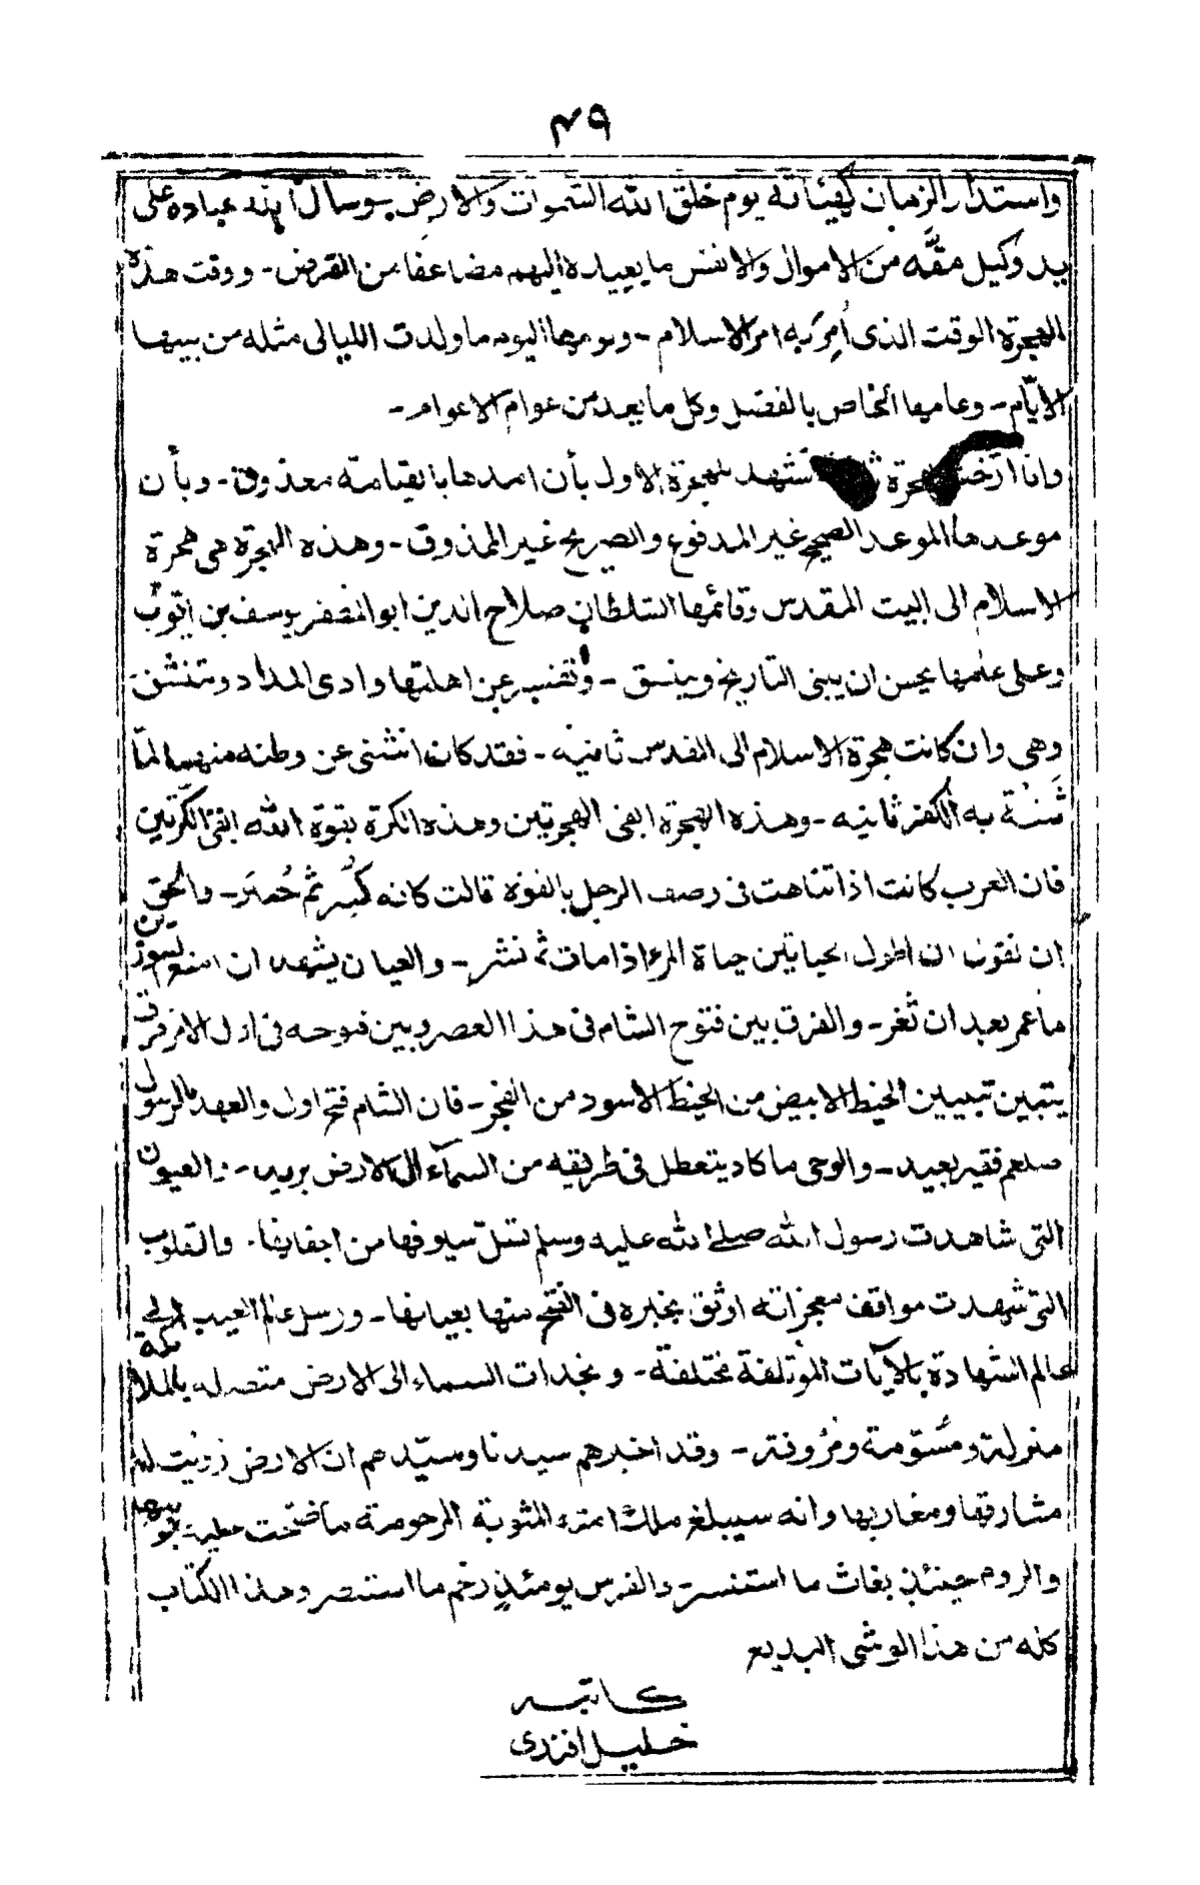 ٤٩
واستدار الزمان كهيئاته يوم خلق الله السموات والارض وسال الله عباده على
يد وكيل حقه من الاموال والانفس ما يعيده اليهم مضاعفا من القرض - ووقت هذه
الهجرة الوقت الذى أُمِرَ به امر الاسلام - ويومها اليوم ما ولدت الليالى مثله من بيها
الايّام - وعامها الخاص بالفضل وكل ما يعد من عوام الاعوام -
وانا ارخت بهجرة تشهد للهجرة الاول بأن امدها بالقيامة معذوق - وبأن
موعدها الموعد الصحيح غير المدفوع والصريح غير الممذوق - وهذه الهجرة هى هجرة
الاسلام الى البيت المقدس وقائمها السلطان صلاح الدين ابو المظفر يوسف بن ايّوب
وعلى عامها يحسن ان يبنى التاريخ وينسق - وتفسير عن اهلتها وادى المداد وتنشق
وهى وان كانت هجرة الاسلام الى القدس ثانيه - فقد كان انثنى عن وطنه منها لمّا
ثنته به الكفر ثانيه - وهذه الهجرة ابقى الهجرتين وهذه الكرة بقوة الله ابقى الكرّتين
فان العرب كانت اذا تناهت فى وصف الرجل بالقوة قالت كانه كُسِر ثم جُبِرَ - والحق
ان نقول ان اطول الحياتين حياة المرء اذا مات ثم نشر - والعيان يشهد ان امنع السورين
ما عمر بعد ان ثغر - والفرق بين فتوح الشام فى هذا العصر وبين فتوحه فى اول الامر فرق
يتبين تبيين الخيط الابيض من الخيط الاسود من الفجر - فان الشام فتح اول والعهد بالرسول
صلعم فقير بعيد - والوحى ما كاد يتعطل فى طريقه من السمآء الى الارض بريد - والعيون
التى شاهدت رسول الله صلى الله عليه وسلم تسلّ سيوفها من اجفانها - والقلوب
التى شهدت مواقف معجزاته اوثق بخبره فى الفتح منها بعيانها - ورسل عالم الغيب الى
عالم الشهادة بالآيات المؤتلفة مختلفة - ونجدات السماء الى الارض متصله بالملائكة
منزلة ومُسوّمة ومُردفة - وقد اخبرهم سيدنا وسيّدهم ان الارض زويت له
مشارقها ومغاربها وانه سيبلغ ملك امته المثوبة المرحومة ما ضمّت عليه جوانبها
والروم حينئذ بغاث ما استنسر - والفرس يومئذٍ رخم ما استنصر وهذا الكتاب
كله من هذا الوشى البديع
كاتبه
خليل افندى